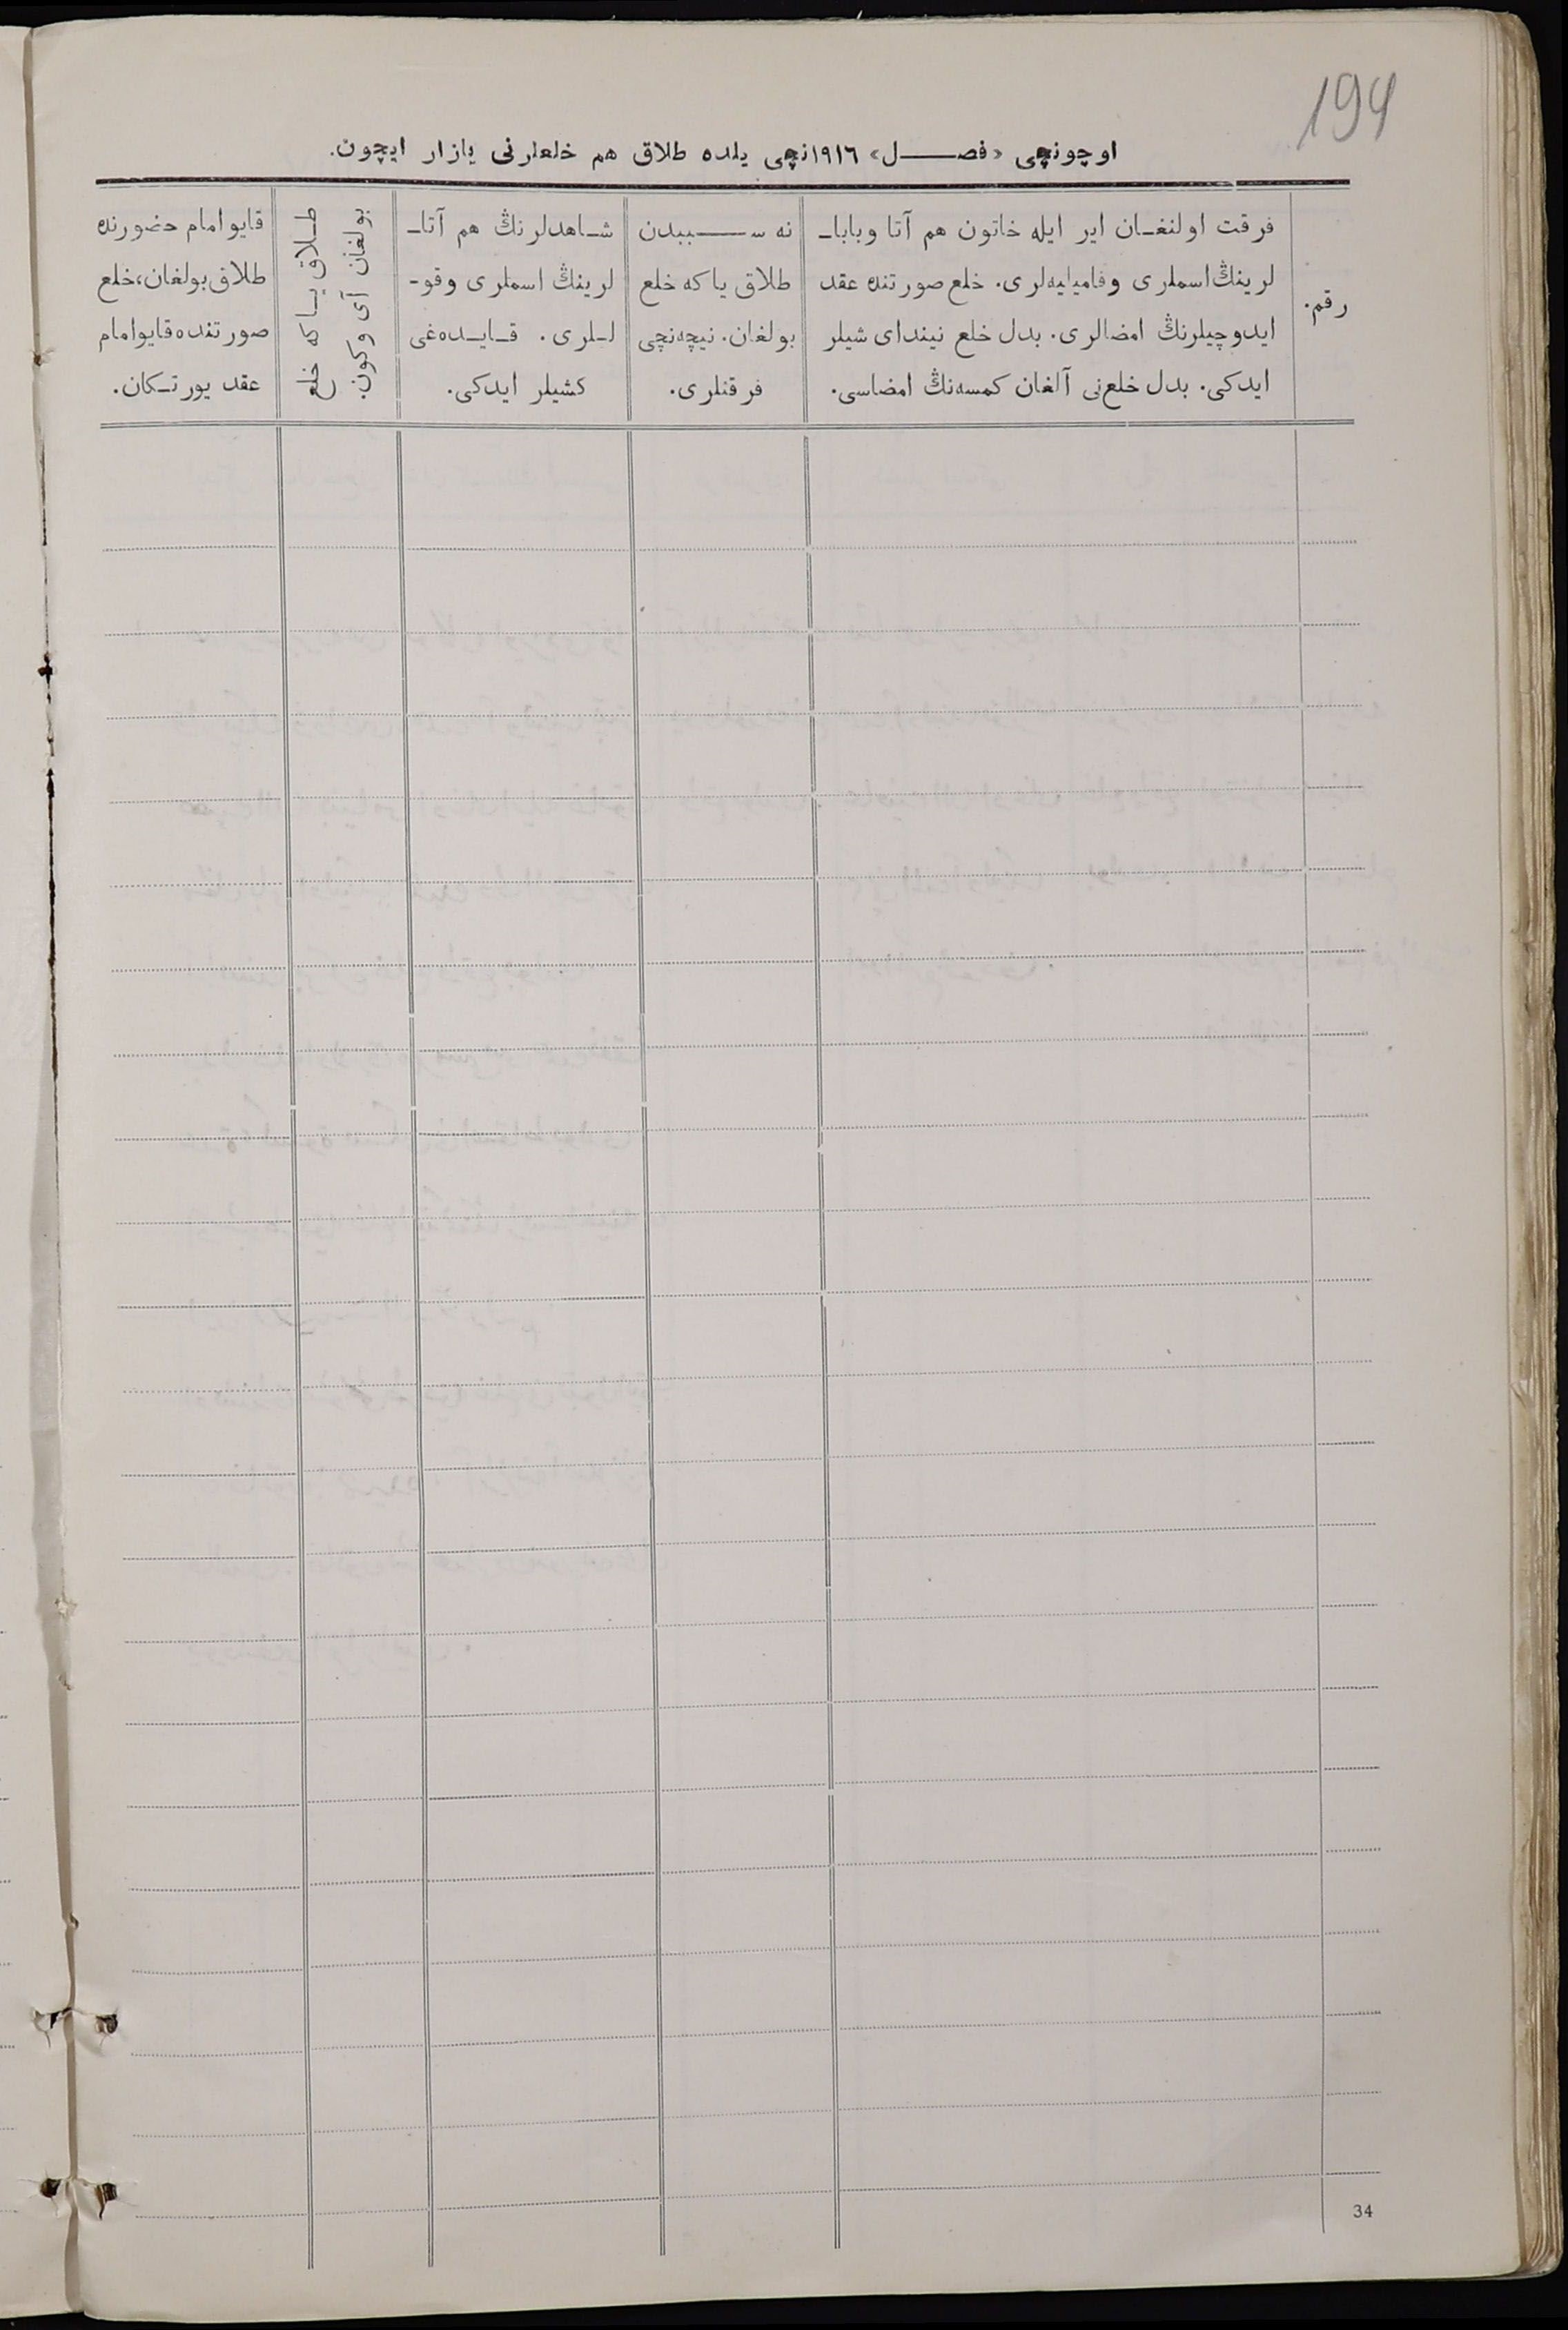 194
اوچونچی «فصل» ١٩١٦نچی یلده طلاق هم خلعلرنی یازار ایچون.
رقم.
فرقت اولنغان ایر ایله خاتون هم آتا وبابا-
لرینڭ اسملری وفامیلیه‌لری. خلع صورتنده عقد
ایدوچیلرنڭ امضالری. بدل خلع نیندای شیلر
ایدکی. بدل خلع‌نی آلغان کمسه‌نڭ امضاسی.
نه سببدن
طلاق یا که خلع
بولغان. نیچه‌نچی
فرقتلری.
شاهدلرنڭ هم آتا-
لرینڭ اسملری وقو-
للری. قایده‌غی
کشیلر ایدکی.
طلاق یا که خلع
بولغان آی وکون.
قایو امام حضورنده
طلاق بولغان، خلع
صورتنده قایو امام
عقد یورتکان.
34